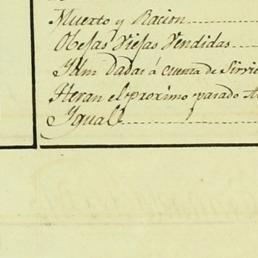 Muerto y Racion
Obejas Viejas Vendidas
Idm Dadas á cuenta de Sirvie
Heran el proximo pasado A
Iguale